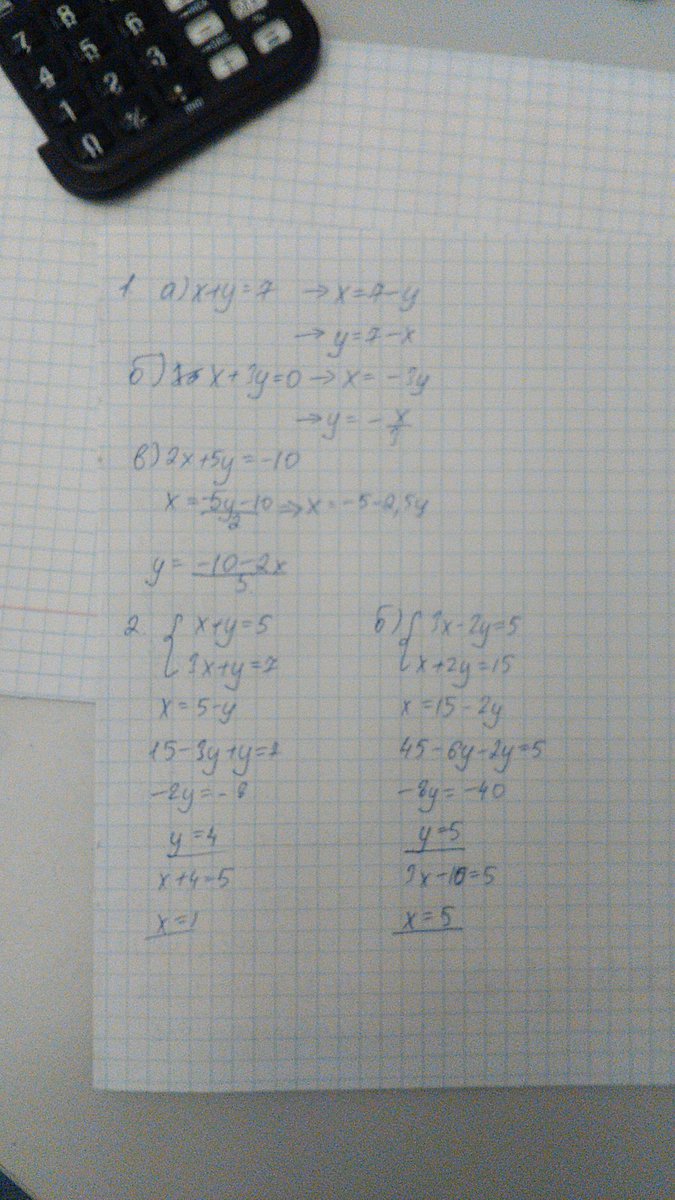 7 8 9
4 5 6 -
1 2 3 + =
0
1 а) x+y=7 → x=7-y
→ y=7-x
б) x+3y=0 → x= -3y
→ y= - x/3
в) 2x+5y=-10
x = -5y-10/2 => x=-5-2,5y
y = -10-2x/5
2. { x+y=5
3x+y=7
x=5-y
15-3y+y=7
-2y=-8
y=4
x+4=5
x=1
б) { 3x-2y=5
x+2y=15
x=15-2y
45-6y-2y=5
-8y=-40
y=5
3x-10=5
x=5